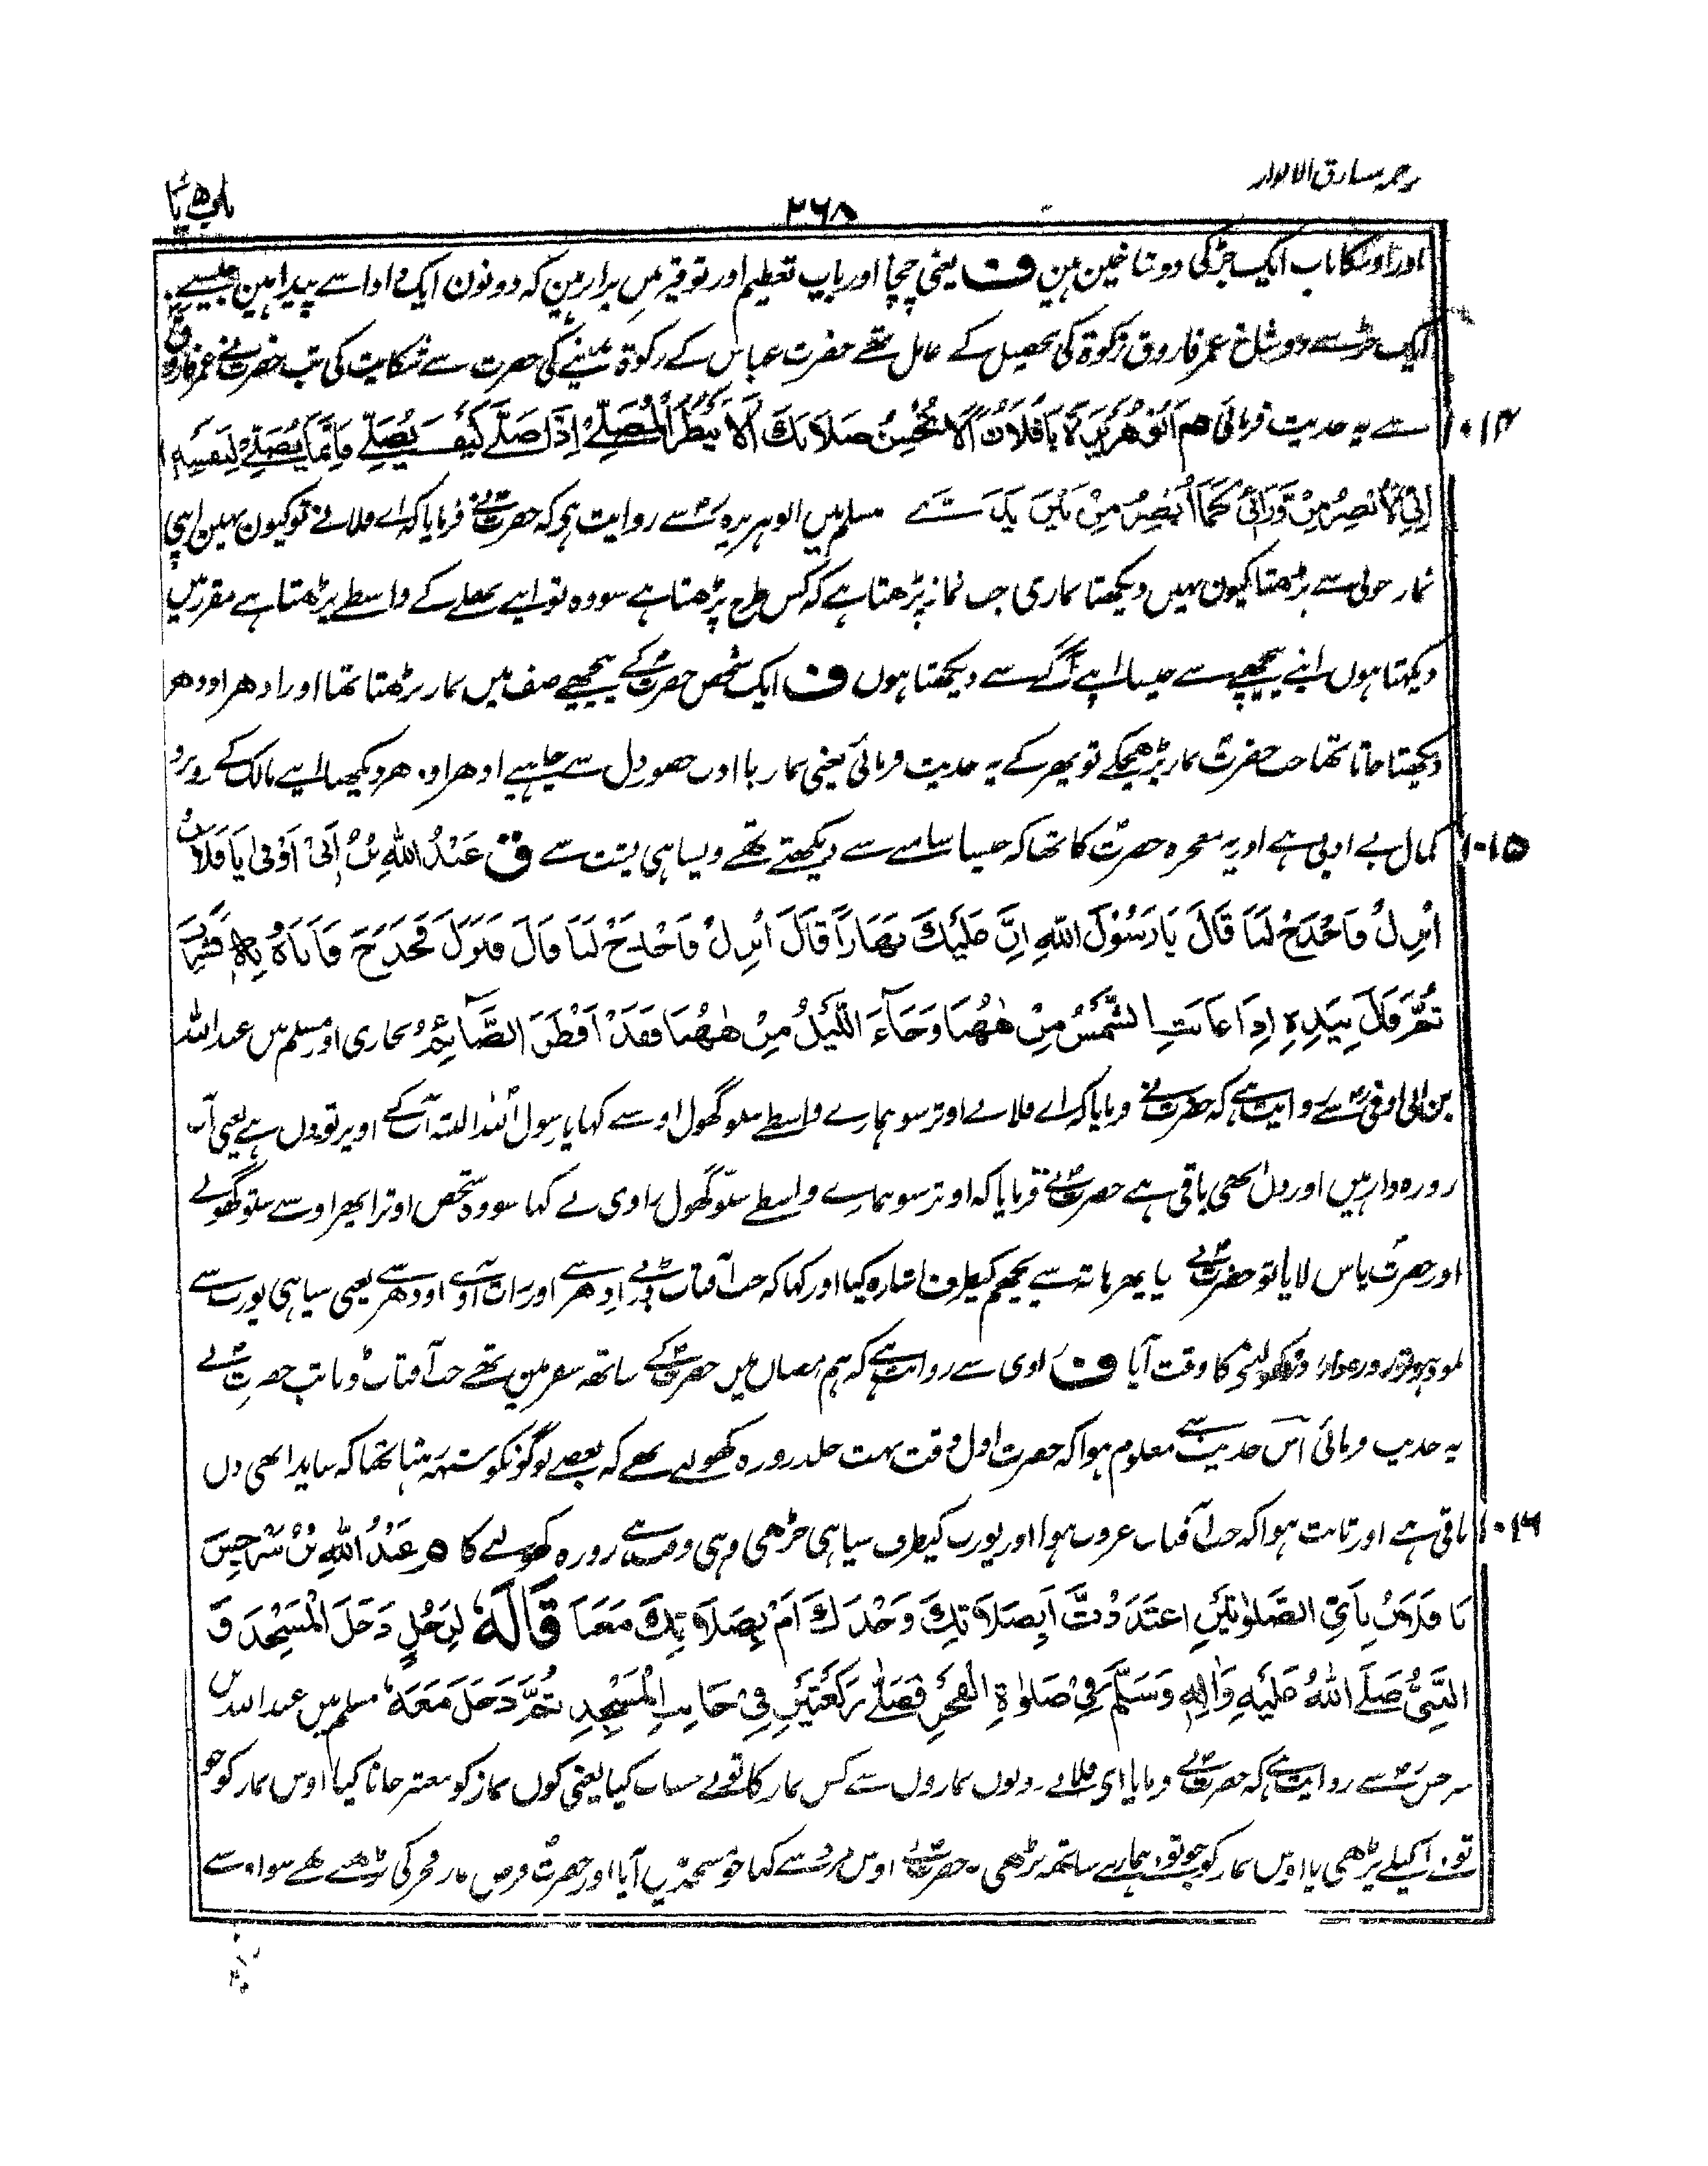 ترجمہ مشارق الانوار
۲۶۸
باب ۵ یا
اور اوسکا باپ ایک جڑ کی دو شاخین ہین ف یعنی چچا اور باپ تعظیم اور توقیر مین برابر ہین کہ دونون ایک دادا سے پیدا ہین جیسے
ایک جڑ سے دو شاخ عمر فاروق زکوة کی تحصیل کے عامل تھے حضرت عباس کے زکوة ندینے کی حضرت سے شکایت کی تب حضرت نے عمر فاروق
۱۰۱۴ سے یہ حدیث فرمائی م اَبُو هُرَيْرَةَ يَا فُلَانُ اَلَا تُحْسِنُ صَلَاتَكَ اَلَا يَنْظُرُ الْمُصَلِّيْ اِذَا صَلّٰى كَيْفَ يُصَلِّيْ فَاِنَّمَا يُصَلِّيْ لِنَفْسِهٖ
اِنِّيْ لَاُبْصِرُ مِنْ وَّرَائِيْ كَمَا اُبْصِرُ مِنْ بَيْنِ يَدَيَّ مسلم میں ابو ہریرہ رض سے روایت ہی کہ حضرت نے فرمایا کہ اے فلانے تو کیون نہین اپنی
نماز خوبی سے پڑھتا کیون نہیں دیکھتا نمازی جب نماز پڑھتا ہے کہ کس طرح پڑھتا ہے سو وہ تو اپنے بھلے کے واسطے پڑھتا ہے مقرر میں
دیکھتا ہوں اپنے پیچھے سے جیسا اپنے آگے سے دیکھتا ہوں ف ایک شخص حضرت کے پیچھے صف میں نماز پڑھتا تھا اور ادھر اودھر
دیکھتا جاتا تھا جب حضرت نماز پڑھ چکے تو پھر کے یہ حدیث فرمائی یعنی نماز با ادب حضور دل سے چاہیے ادھر اودھر دیکھنا اپنے مالک کے روبرو
۱۰۱۵ کمال بے ادبی ہے اور یہ معجزہ حضرت کا تھا کہ جیسا سامنے سے دیکھتے تھے ویسا ہی پشت سے ق عَبْدُ اللهِ بْنُ اَبِيْ اَوْفٰى يَا فُلَانُ
اَنْزِلْ فَاجْدَحْ لَنَا قَالَ يَا رَسُوْلَ اللهِ اِنَّ عَلَيْكَ نَهَارًا قَالَ اَنْزِلْ فَاجْدَحْ لَنَا قَالَ فَنَزَلَ فَجَدَحَ فَاَتَاهُ بِهٖ فَشَرِبَ
ثُمَّ قَالَ بِيَدِهٖ اِذَا غَابَتِ الشَّمْسُ مِنْ هٰهُنَا وَجَاءَ اللَّيْلُ مِنْ هٰهُنَا فَقَدْ اَفْطَرَ الصَّائِمُ بخاری اور مسلم میں عبد اللہ
بن ابی اوفی رض سے روایت ہے کہ حضرت نے فرمایا کہ اے فلانے اوتر سو ہمارے واسطے ستو گھول اوسنے کہا یا رسول اللہ البتہ آپ کے اوپر تو دن ہے یعنی آپ
روزہ دار ہیں اور دن ابھی باقی ہے حضرت نے فرمایا کہ اوتر سو ہمارے واسطے ستو گھول راوی نے کہا سو وہ شخص اوترا پھر اوسنے ستو گھولے
اور حضرت پاس لایا تو حضرت نے پیا پھر ہاتھ سے پچھم کیطرف اشارہ کیا اور کہا کہ جب آفتاب ڈوبے ادھر سے اور رات آوے اودھر سے یعنی سیاہی پورب سے
نمود ہو تو روزہ دار کے روزہ کھولنے کا وقت آیا ف راوی سے روایت ہے کہ ہم رمضان میں حضرت کے ساتھ سفر مین تھے جب آفتاب ڈوبا تب حضرت نے
یہ حدیث فرمائی اس حدیث سے معلوم ہوا کہ حضرت اول وقت بہت جلد روزہ کھولتے تھے کہ بعضے لوگونکو شبہہ رہتا تھا کہ شاید ابھی دن
۱۰۱۶ باقی ہے اور ثابت ہوا کہ جب آفتاب غروب ہوا اور پورب کیطرف سیاہی چڑھی وہی وقت ہے روزہ کھولنے کا م عَبْدُ اللهِ بْنُ سَرْجِسَ
يَا فُلَانُ بِاَيِّ الصَّلٰوتَيْنِ اعْتَدَدْتَ اَبِصَلَاتِكَ وَحْدَكَ اَمْ بِصَلَاتِكَ مَعَنَا قَالَهٗ لِرَجُلٍ دَخَلَ الْمَسْجِدَ وَ
النَّبِيُّ صَلَّى اللهُ عَلَيْهِ وَاٰلِهٖ وَسَلَّمَ فِيْ صَلٰوةِ الْفَجْرِ فَصَلّٰى رَكْعَتَيْنِ فِيْ جَانِبِ الْمَسْجِدِ ثُمَّ دَخَلَ مَعَهٗ مسلم میں عبد اللہ بن
سرجس رض سے روایت ہے کہ حضرت نے فرمایا ای فلانے دونوں نمازوں سے کس نماز کا تونے حساب کیا یعنی کون نماز کو معتبر جانا کیا اوس نماز کو جو
تونے اکیلے پڑھی یا اوس نماز کو جو تونے ہمارے ساتھ پڑھی حضرت نے اوس مرد سے کہا جو مسجد میں آیا اور حضرت فرض نماز فجر کی پڑھتے تھے سو اوسنے